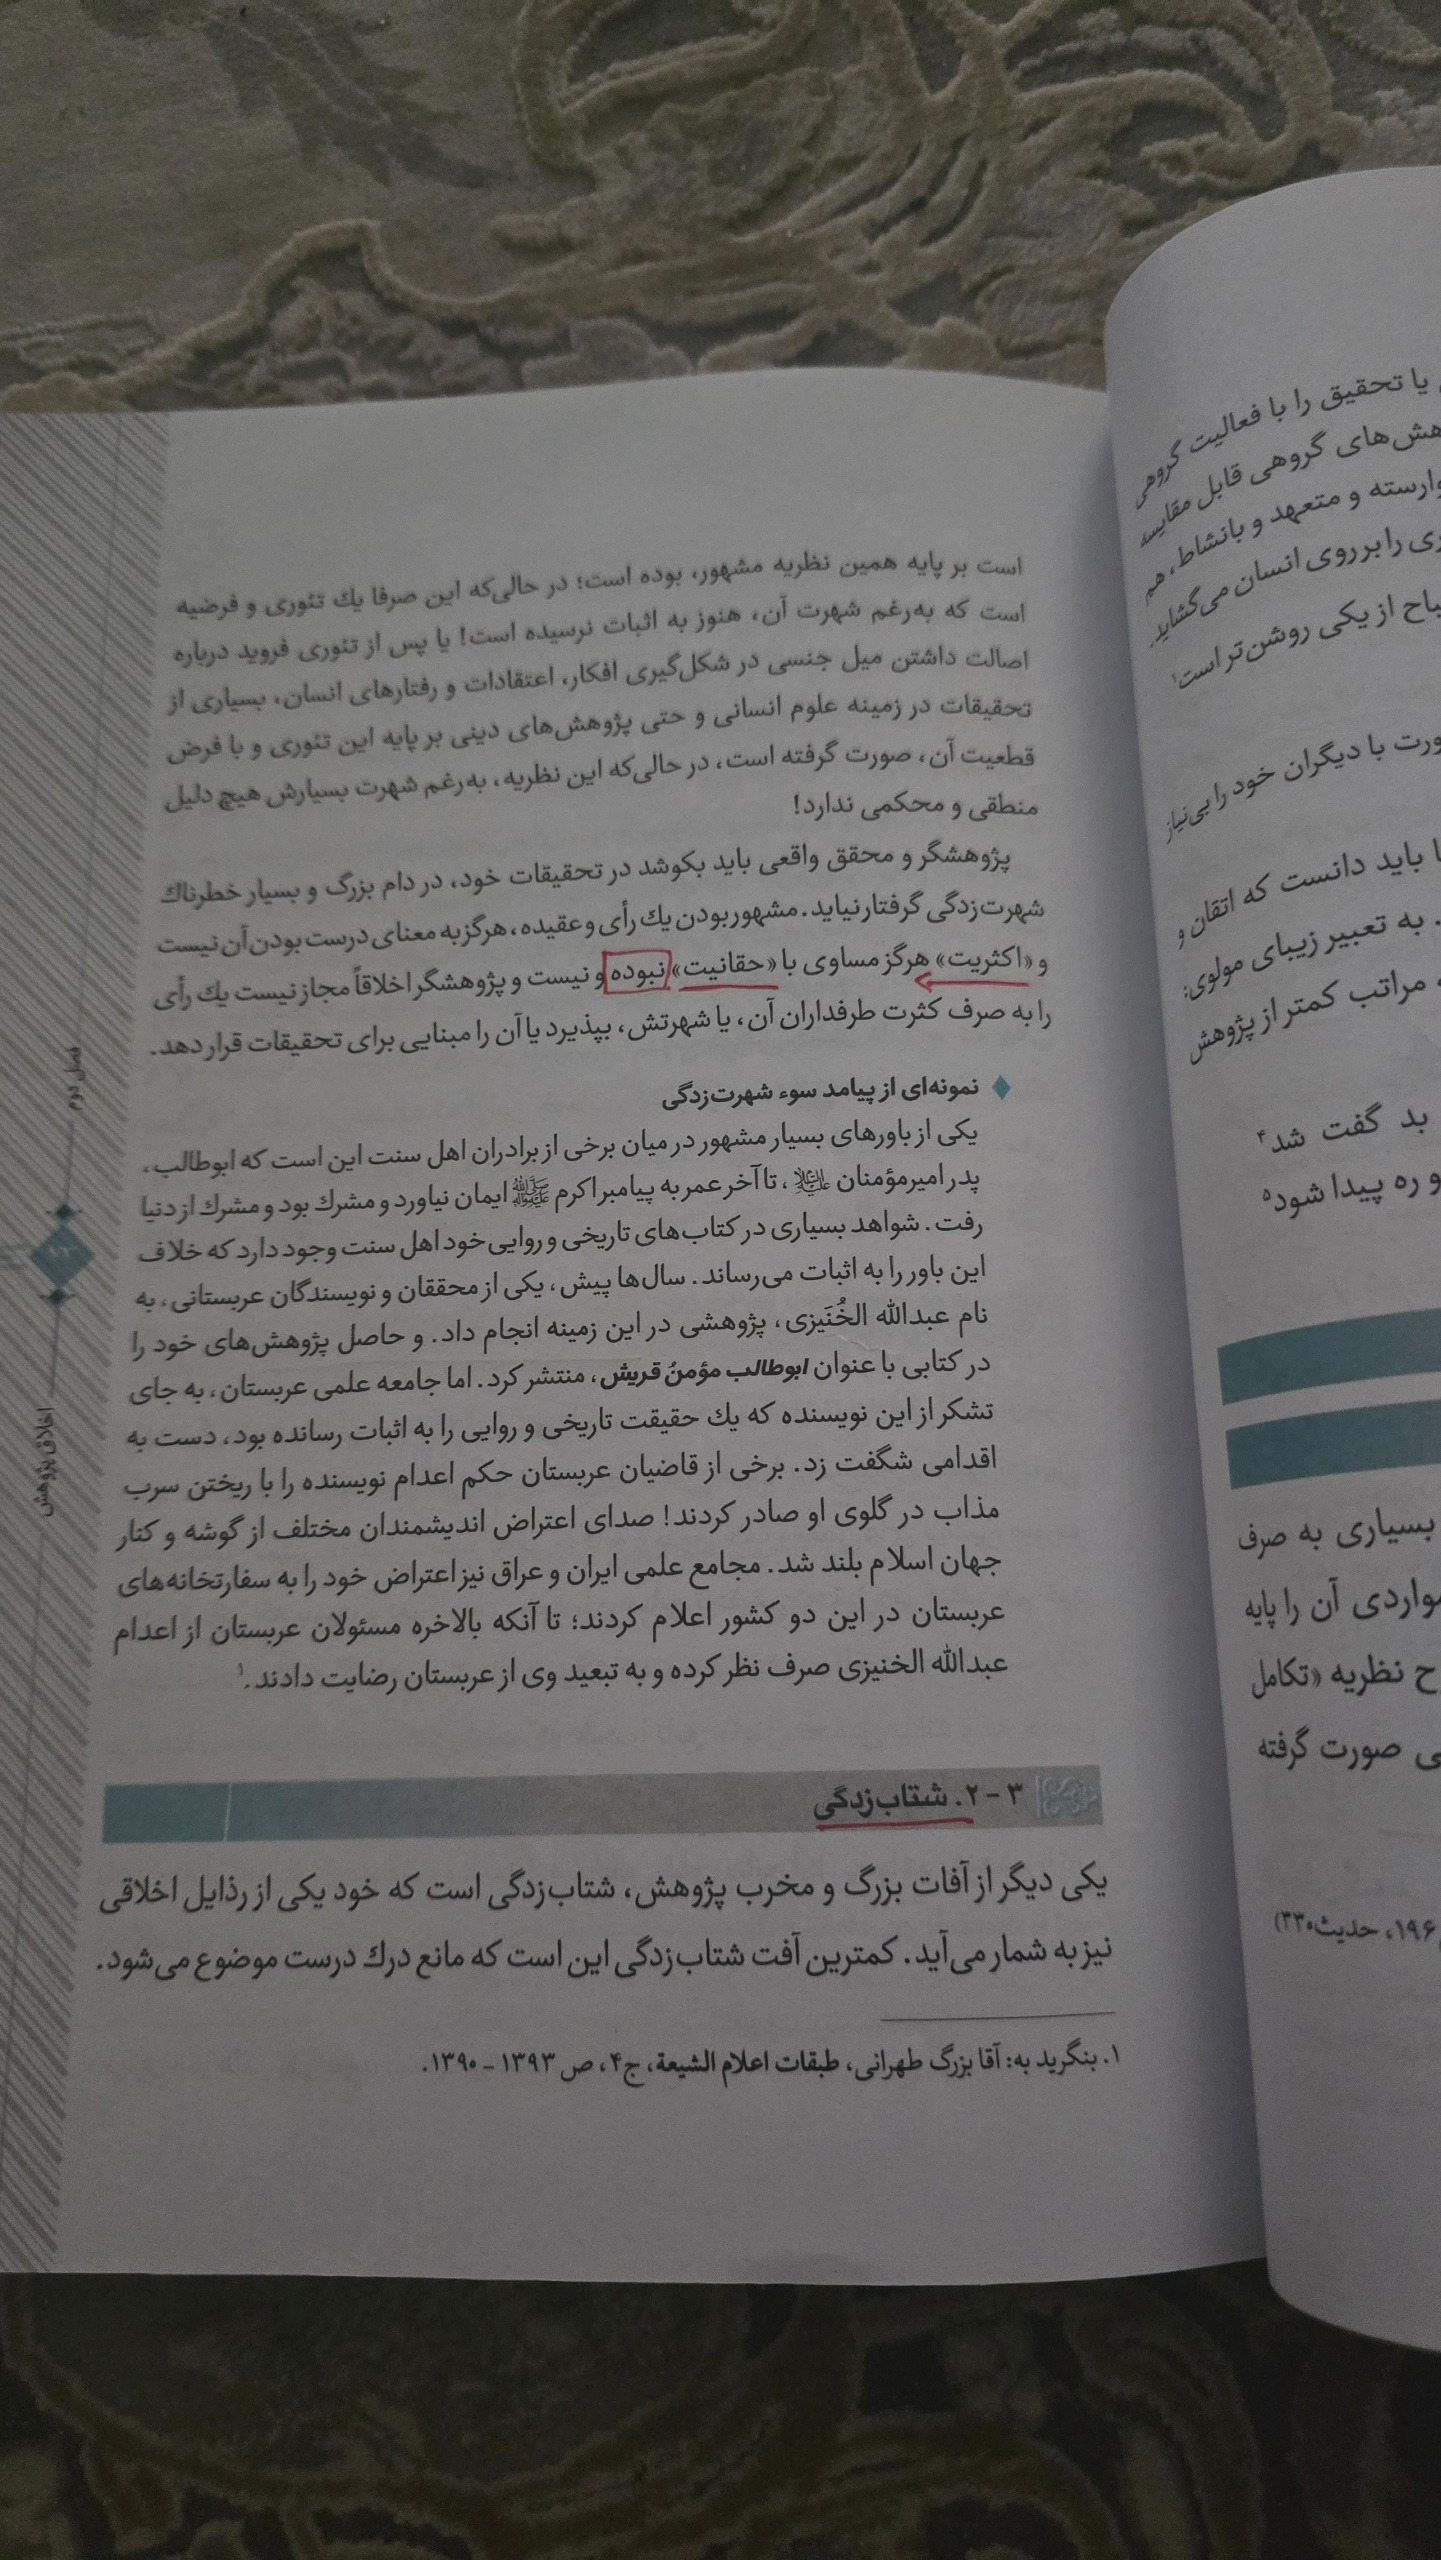 است بر پایه همین نظریه مشهور، بوده است؛ در حالی‌که این صرفا یك تئوری و فرضیه
است که به‌رغم شهرت آن، هنوز به اثبات نرسیده است! یا پس از تئوری فروید درباره
اصالت داشتن میل جنسی در شکل‌گیری افکار، اعتقادات و رفتارهای انسان، بسیاری از
تحقیقات در زمینه علوم انسانی و حتی پژوهش‌های دینی بر پایه این تئوری و با فرض
قطعیت آن، صورت گرفته است، در حالی‌که این نظریه، به‌رغم شهرت بسیارش هیچ دلیل
منطقی و محکمی ندارد!
پژوهشگر و محقق واقعی باید بکوشد در تحقیقات خود، در دام بزرگ و بسیار خطرناك
شهرت‌زدگی گرفتار نیاید. مشهور بودن یك رأی و عقیده، هرگز به معنای درست بودن آن نیست
و «اکثریت» هرگز مساوی با «حقانیت» نبوده و نیست و پژوهشگر اخلاقاً مجاز نیست یك رأی
را به صرف کثرت طرفداران آن، یا شهرتش، بپذیرد یا آن را مبنایی برای تحقیقات قرار دهد.
نمونه‌ای از پیامد سوء شهرت‌زدگی
یکی از باورهای بسیار مشهور در میان برخی از برادران اهل سنت این است که ابوطالب،
پدر امیرمؤمنان علیه‌السلام، تا آخر عمر به پیامبر اکرم ﷺ ایمان نیاورد و مشرك بود و مشرك از دنیا
رفت. شواهد بسیاری در کتاب‌های تاریخی و روایی خود اهل سنت وجود دارد که خلاف
این باور را به اثبات می‌رساند. سال‌ها پیش، یکی از محققان و نویسندگان عربستانی، به
نام عبدالله الخُنَیزی، پژوهشی در این زمینه انجام داد. و حاصل پژوهش‌های خود را
در کتابی با عنوان ابوطالب مؤمنُ قریش، منتشر کرد. اما جامعه علمی عربستان، به جای
تشکر از این نویسنده که یك حقیقت تاریخی و روایی را به اثبات رسانده بود، دست به
اقدامی شگفت زد. برخی از قاضیان عربستان حکم اعدام نویسنده را با ریختن سرب
مذاب در گلوی او صادر کردند! صدای اعتراض اندیشمندان مختلف از گوشه و کنار
جهان اسلام بلند شد. مجامع علمی ایران و عراق نیز اعتراض خود را به سفارتخانه‌های
عربستان در این دو کشور اعلام کردند؛ تا آنکه بالاخره مسئولان عربستان از اعدام
عبدالله الخنیزی صرف نظر کرده و به تبعید وی از عربستان رضایت دادند.۱
۳ - ۲. شتاب‌زدگی
یکی دیگر از آفات بزرگ و مخرب پژوهش، شتاب‌زدگی است که خود یکی از رذایل اخلاقی
نیز به شمار می‌آید. کمترین آفت شتاب‌زدگی این است که مانع درك درست موضوع می‌شود.
۱. بنگرید به: آقا بزرگ طهرانی، طبقات اعلام الشیعة، ج۴، ص ۱۳۹۳ - ۱۳۹۰.
فصل دوم
اخلاق پژوهش
یا تحقیق را با فعالیت گروهی
هش‌های گروهی قابل مقایسه
وارسته و متعهد و بانشاط، هم
ری را بر روی انسان می‌گشاید.
باح از یکی روشن‌تر است۱
ورت با دیگران خود را بی‌نیاز
ا باید دانست که اتقان و
. به تعبیر زیبای مولوی:
مراتب کمتر از پژوهش
بد گفت شد۴
و ره پیدا شود۵
بسیاری به صرف
مواردی آن را پایه
ح نظریه «تکامل
ی صورت گرفته
۱۹۶، حدیث۳۳۰)